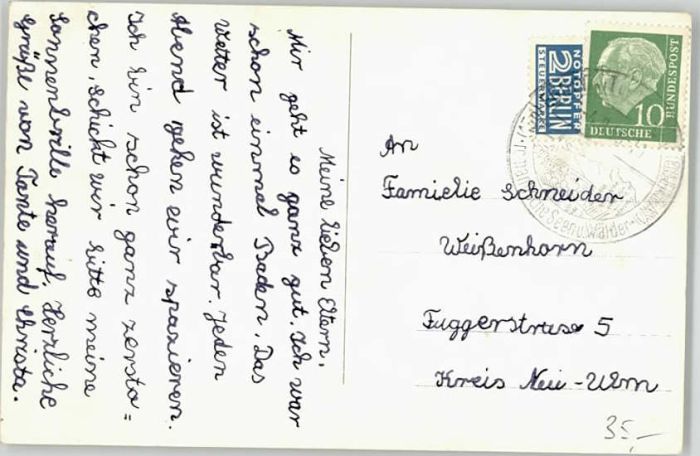 Meine lieben Eltern.
Mir geht es ganz gut. Ich war
schon einmal Baden. Das
Wetter ist wunderbar. Jeden
Abend gehen wir spazieren.
Ich bin schon ganz zersto=
chen, schickt mir bitte meine
Sonnenbrille herauf. Herzliche
Grüße von Tante und Christa.
NOTOPFER
2 BERLIN
STEUERMARKE
10
DEUTSCHE
BUNDESPOST
An
Familie Schneider
Weißenhorn
Fuggerstrase 5
Kreis Neu-Ulm
35,-